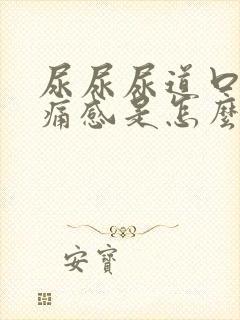 尿尿尿道口
痛感是怎麼
安寶